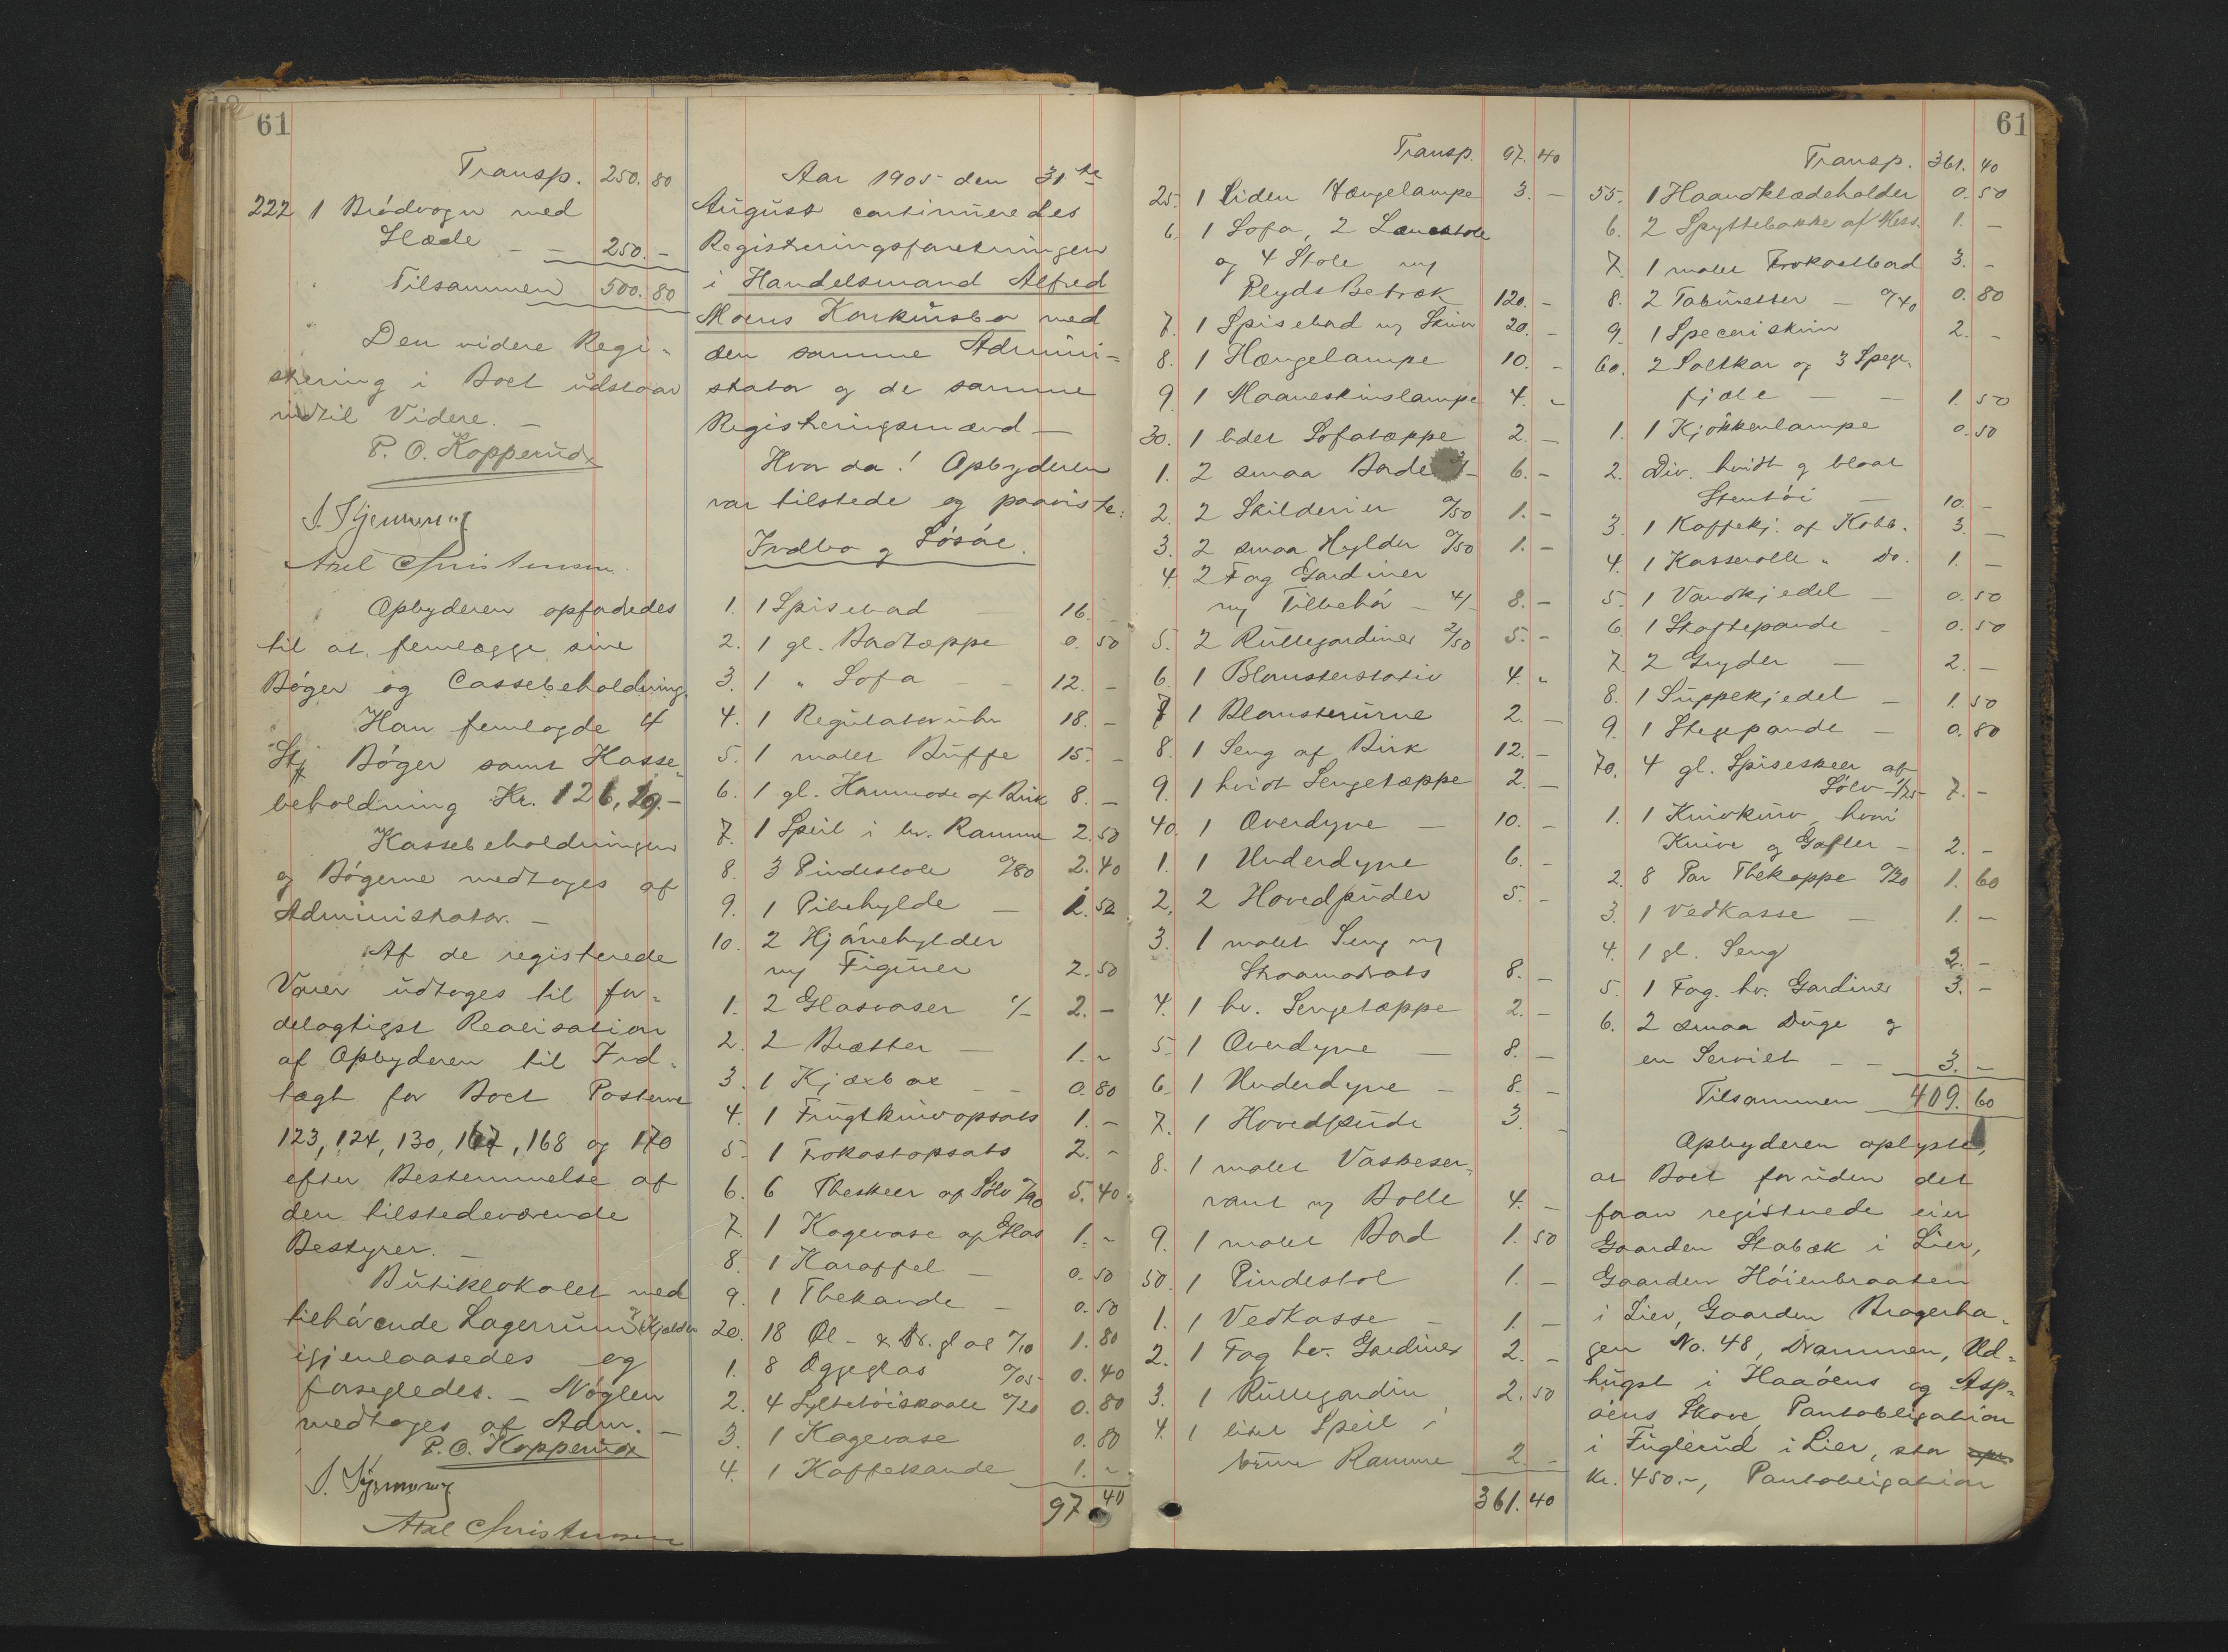 61
Transp. 250. 80
222 1 Brödvogn med
Hæde - - 250. -
Tilsammen 500. 80
Den videre Regi-
strering i Boet udstaar
indtil Videre. -
P. O. Kopperud
Axel Christensen.
Opbyderen opfordredes
til at fremlægge sine
Bøger og Cassebeholdning.
Han fremlagde 4
Stk Bøger samt Kasse-
beholdning Kr. 126,19.-
Kassebeholdningen
og Bøgerne medtoges af
Administrator. -
Af de registrerede
Varer udtoges til for-
delagtigst Realisation
af Opbyderen til Ind-
tægt for Boet Posterne
123, 124, 130, 167, 168 og 170
efter Bestemmelse af
den tilstedeværende
Bestyrer. -
Butiklokalet med
tilhørende Lagerrum i Kjelder
igjenlaasedes og
forsegledes. - Nøglen
medtoges af Adm. -
P. O. Kopperud
Axel Christensen
Aar 1905 den 31te
August continueredes
Registreringsforretningen
i Handelsmand Alfred
Moens Konkursbo ved
den samme Admini-
strator og de samme
Registreringsmænd -
Hvor da! Opbyderen
var tilstede og paaviste:
Indbo og Løsøre.
1. 1 Spisebord - 16. -
2. 1 gl. Bordtæppe 0. 50
3. 1 " Sofa - - 12. -
4. 1 Regulatoruhr 18. -
5. 1 malet Buffe 15. -
6. 1 gl. Kommode af Birk 8. -
7. 1 Speil i br. Ramme 2. 50
8. 3 Pindestole 0/80 2. 40
9. 1 Pibehylde - 1. 50
10. 2 Hjørnehylder
m/ Figurer 2. 50
1. 2 Glasvaser 1/- 2. -
2. 2 Brætter - 1. -
3. 1 Kjæxbox - - 0. 80
4. 1 Frugtknivopsats 1. -
5. 1 Frokostopsats 2. -
6. 6 Theskeer af Sølv 0/90 5. 40
7. 1 Kagevase af Glas 1. -
8. 1 Karaffel - 0. 50
9. 1 Thekande - 0. 50
20. 18 Øl- & Dr.glas 0/10 1. 80
1. 8 Æggeglas 0/05 0. 40
2. 4 Syltetøiskaale 0/20 0. 80
3. 1 Kagevase 0. 80
4. 1 Kaffekande 1. -
97 40
61
Transp. 97. 40
25. 1 Liden Hængelampe 3. -
6. 1 Sofa, 2 Lænestole
og 4 Stole m/
PlydsBetræk 120. -
7. 1 Spisebord m/ Skuer 20. -
8. 1 Hængelampe 10. -
9 1 Maaneskinslampe 4. -
30. 1 lidet Sofatæppe 2. -
1. 2 smaa Borde 3/- 6. -
2. 2 Skilderier 0/50 1. -
3. 2 smaa Hylder 0/50 1. -
4. 2 Fag Gardiner
m/ Tilbehør - 4/- 8. -
5. 2 Rullegardiner 2/50 5. -
6. 1 Blomsterstativ 4. "
7 1 Blomsterurne 2. -
8. 1 Seng af Birk 12. -
9. 1 hvidt Sengetæppe 2. -
40. 1 Overdyne - 10. -
1. 1 Underdyne 6. -
2. 2 Hovedpuder 5. -
3. 1 malet Seng m/
Straamadrats 8. -
4. 1 hv. Sengetæppe 2. -
5. 1 Overdyne - 8. -
6. 1 Underdyne - 8. -
7. 1 Hovedpude 3. -
8. 1 malet Vaskeser-
vant m/ Bolle 4. -
9. 1 malet Bord 1. 50
50. 1 Pindestol 1. -
1. 1 VedKasse - 1. -
2. 1 Fag hv. Gardiner 2. -
3. 1 Rullegardin 2. 50
4. 1 litet Speil i
brun Ramme 2. -
361. 40
61
Transp. 361. 40
55. 1 Haandklædeholder 0. 50
6. 2 Spyttebakke af Mess. 1. -
7. 1 malet Frokostbord 3. -
8. 2 Taburetter - 0/40 0. 80
9. 1 Speceriskrin 2. -
60. 2 Saltkar og 3 Spege-
fjæle - - 1. 50
1. 1 Kjökkenlampe 0. 50
2. Div. hvidt og blaat
Stentöi - 10. -
3. 1 Kaffekj. af Kobb. 3. -
4. 1 Kasserolle " Do. 1. -
5. 1 Vandkjedel - 0. 50
6. 1 Skaftepande - 0. 50
7. 2 Gryder - 2. -
8. 1 Suppekjedel - 1. 50
9. 1 Stegepande - 0. 80
70. 4 gl. Spiseskeer af
Sølv 1/75 7. -
1. 1 Knivkurv, hvori
Knive og Gafler - 2. -
2. 8 Par Thekoppe 0/20 1. 60
3. 1 VedKasse - 1. -
4. 1 gl. Seng 2. -
5. 1 Fag. hv. Gardiner 3. -
6. 2 smaa Duge og
en Serviet - - 3. -
Tilsammen 409. 60
Opbyderen oplyste,
at Boet foruden det
foran registrerede eier
Gaarden Stabæk i Lier,
Gaarden Høienbraaten
i Lier, Gaarden Bragerha-
gen No. 48, Drammen, Ud-
hugst i Haaøens og Asp-
øens Skove, Pantobligation
i Fuglerud i Lier, stor
Kr. 450.-, Pantobligation